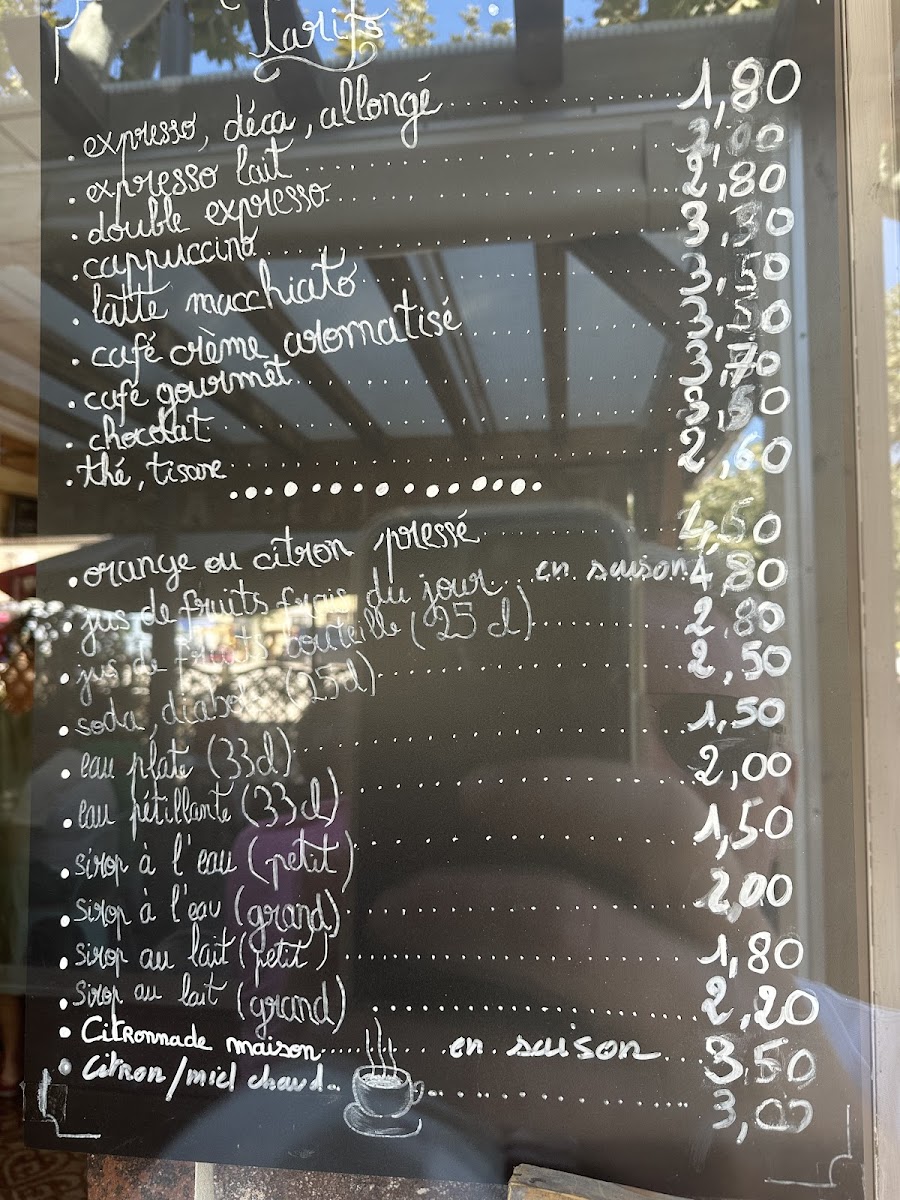 Tarifs
• expresso, déca, allongé 1,80
• expresso lait 2,00
• double expresso 2,80
• cappuccino 3,30
• latte macchiato 3,50
• café crème aromatisé
• café gourmet 3,70
• chocolat 3,50
• thé, tisane 2,60
• orange ou citron pressé 4,50
• jus de fruits frais du jour en saison 4,80
• jus de fruits bouteille (25 cl) 2,80
• soda, diabolo (25cl) 2,50
• eau plate (33cl) 1,50
• eau pétillante (33cl) 2,00
• sirop à l'eau (petit) 1,50
• sirop à l'eau (grand) 2,00
• sirop au lait (petit) 1,80
• Sirop au lait (grand) 2,20
• Citronnade maison en saison 3,50
• Citron/miel chaud 3,00